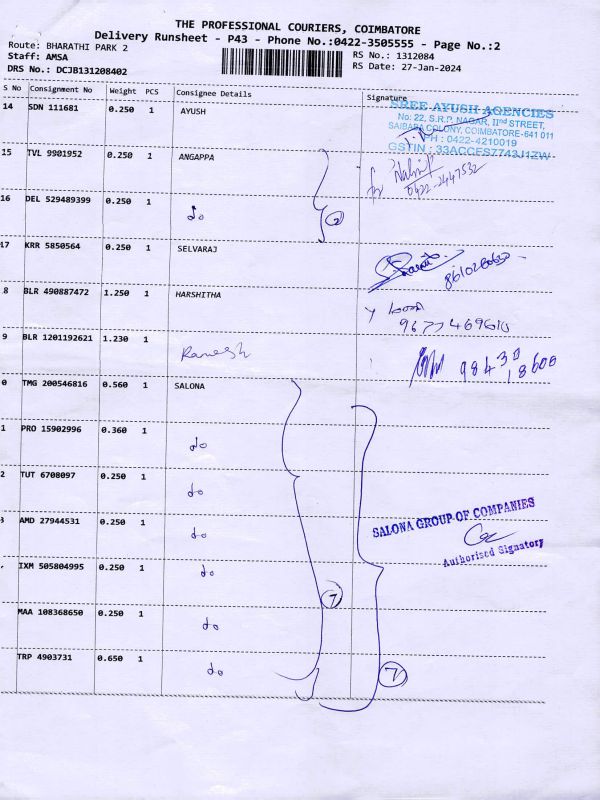 THE PROFESSIONAL COURIERS, COIMBATORE
Delivery Runsheet - P43 - Phone No.:0422-3505555 - Page No.:2
Route: BHARATHI PARK 2
RS No.: 1312084
Staff: AMSA
RS Date: 27-Jan-2024
DRS No.: DCJB131208402
S No Consignment No Weight PCS Consignee Details Signature
14 SDN 111681 0.250 1 AYUSH
SREE AYUSH AGENCIES
No: 22, S.R.P. NAGAR, IInd STREET,
SAIBABA COLONY, COIMBATORE-641 011
PH : 0422-4210019
GSTIN : 33ACCES7743J1ZW
15 TVL 9901952 0.250 1 ANGAPPA
0422-2447532
16 DEL 529489399 0.250 1 do
2
17 KRR 5850564 0.250 1 SELVARAJ
8 BLR 490887472 1.250 1 HARSHITHA
9677469610
9 BLR 1201192621 1.230 1 Ramesh
98430
18600
0 TMG 200546816 0.560 1 SALONA
1 PRO 15902996 0.360 1 do
2 TUT 6708097 0.250 1 do
3 AMD 27944531 0.250 1 do
SALONA GROUP OF COMPANIES
Authorised Signatory
IXM 505804995 0.250 1 do
7
MAA 108368650 0.250 1 do
TRP 4903731 0.650 1 do
7